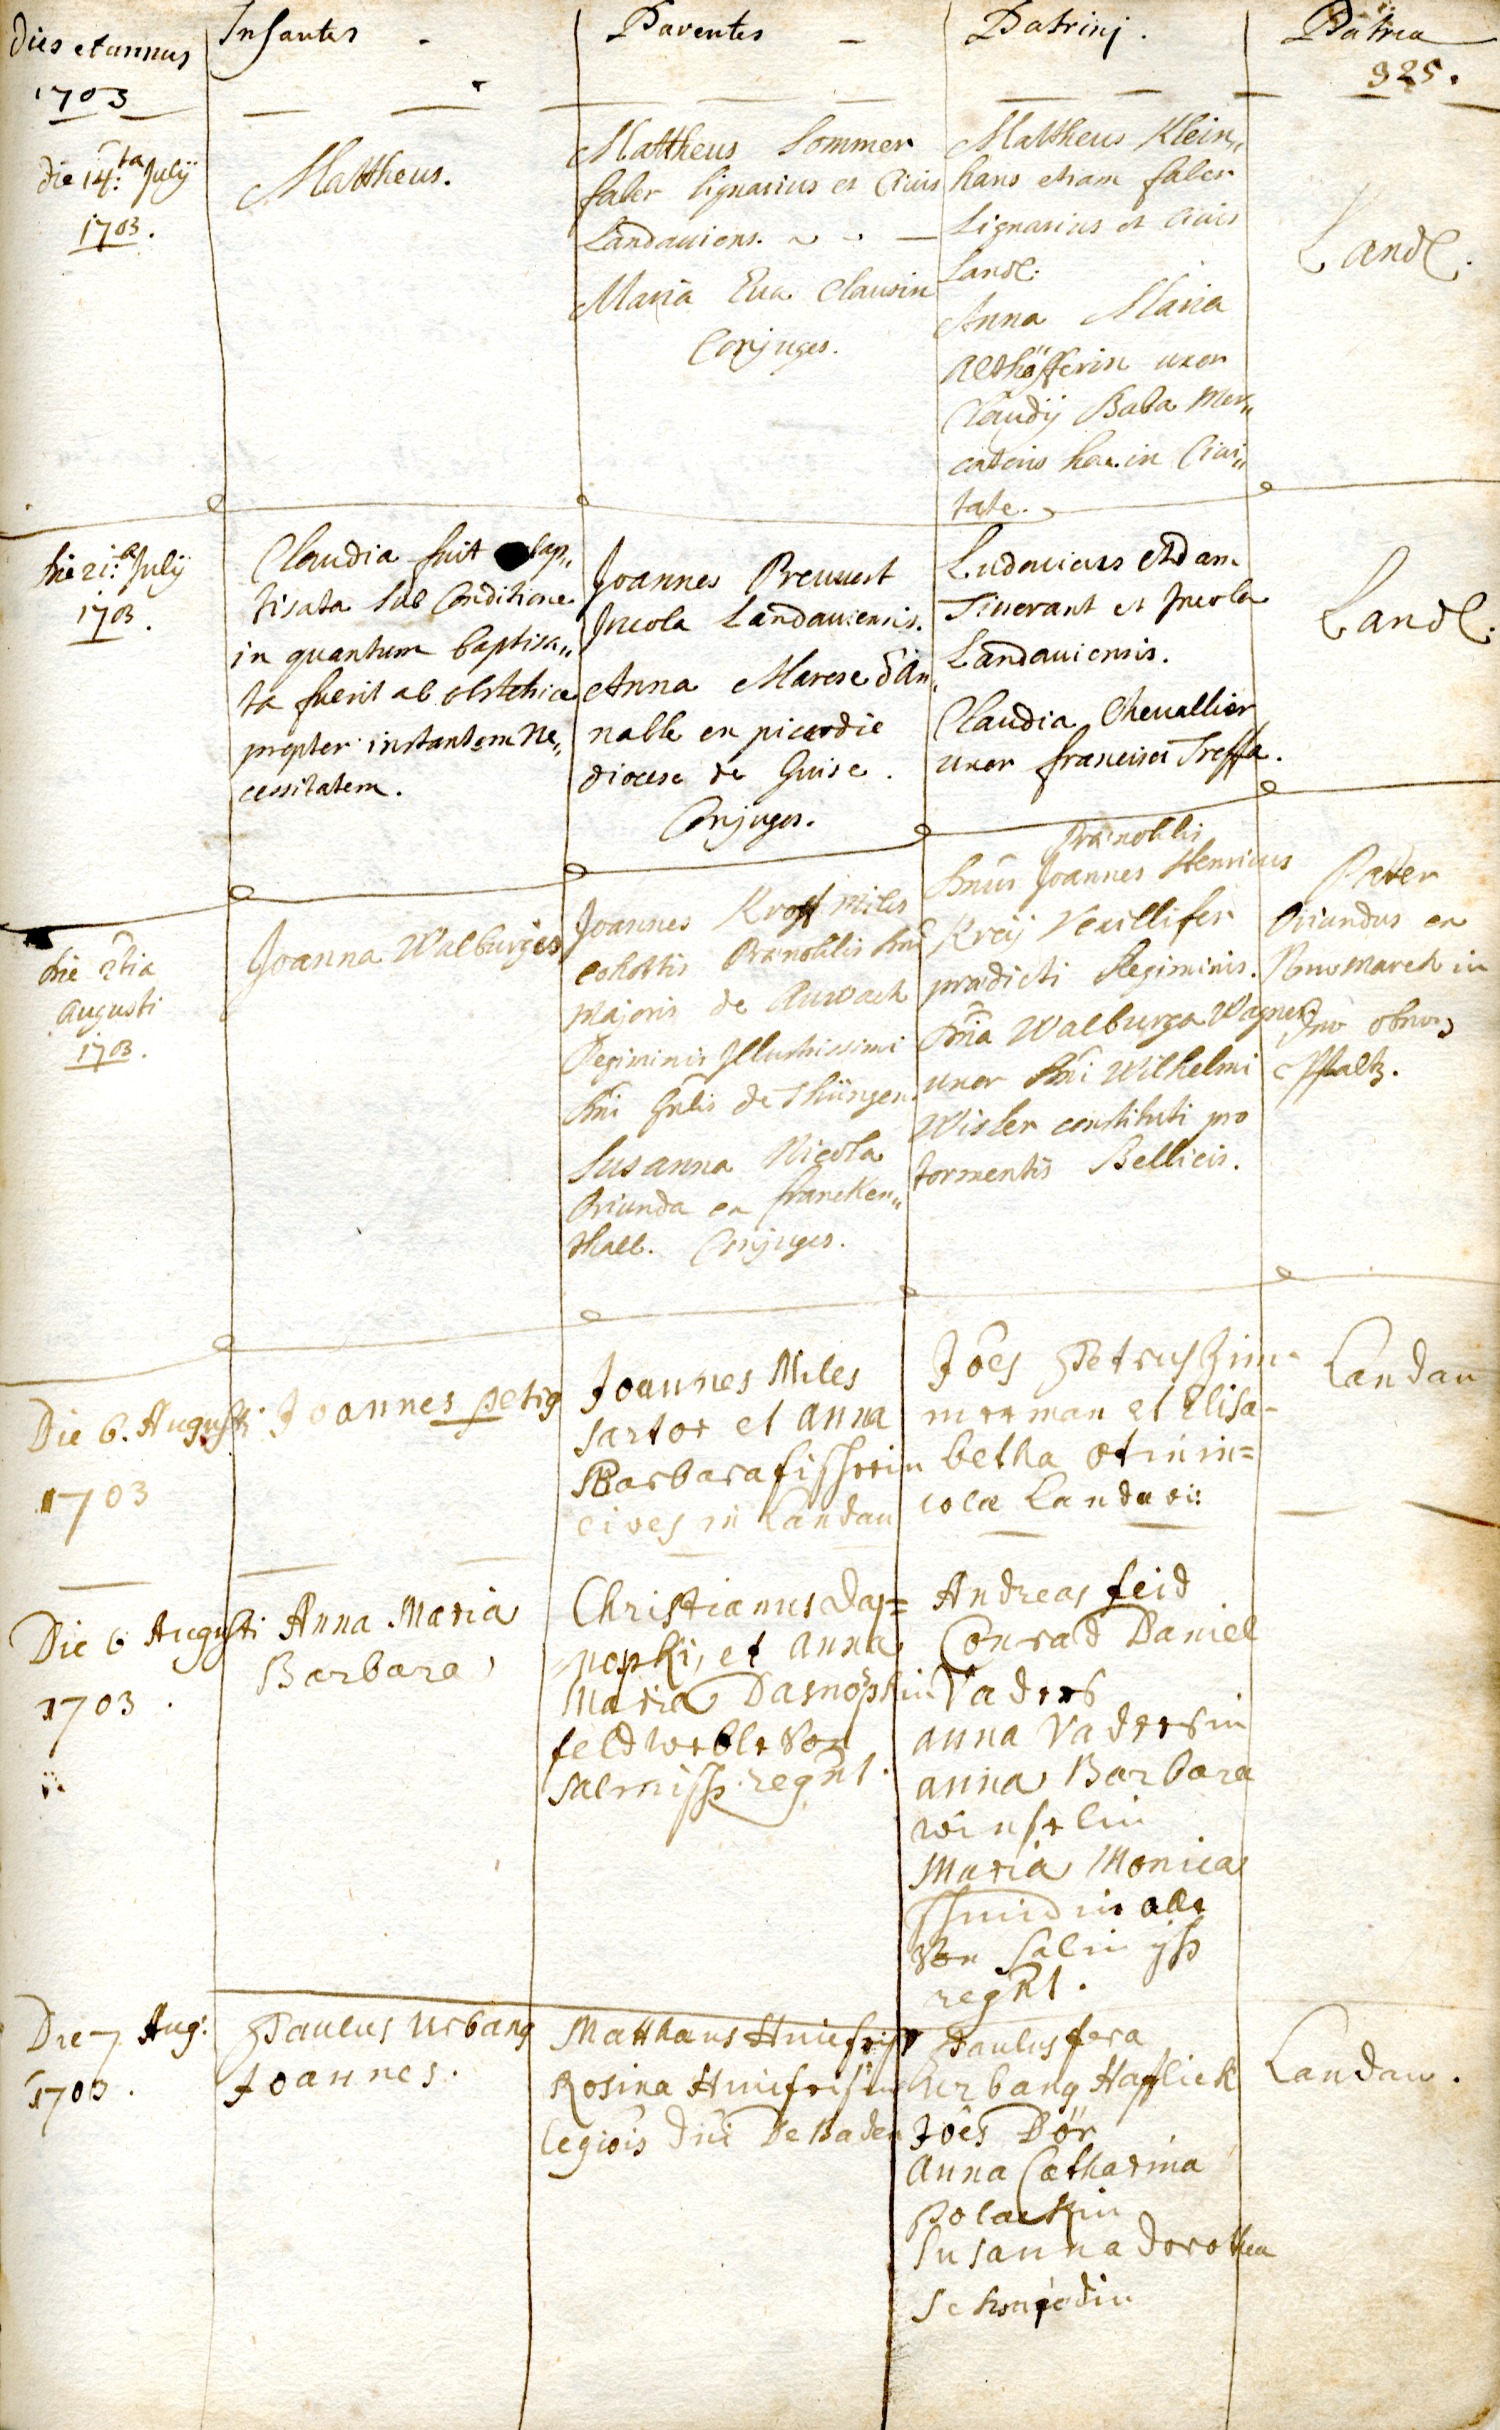 Dies et annus
1703
Infantes
Parentes
Patrinj.
Patria
325.
die 14:ta July
1703.
Mattheus.
Mattheus Sommer
faber lignarius et Civis
Landaviens.
Maria Eva Clausin
Conjuges.
Mattheus Klein„
hans etiam faber
Lignarius et Civis
Land:
Anna Maria
Althöfferin uxor
Claudij Baba Mer„
catoris hac in Civi„
tate.
Land:
die 21: July
1703.
Claudia fuit bap„
tisata sub Conditione
in quantum baptisa„
ta fuerit ab obstetrice
propter instantem Ne„
cessitatem.
Joannes Preuuest
Incola Landaviensis.
Anna Marese d'An„
nable en picardie
diocese de Guise.
Conjuges.
Ludovicus Adam
Tinerant et Incola
Landaviensis.
Claudia Chevallier
uxor francisci Treffa.
Land:
die 2tia
Augusti
1703.
Joanna Walburges
Joannes Kroff miles
cohortis Prænobilis Dnĩ
Majoris de Auwach
Regiminis Illustrissimi
Dnĩ Gnlis de Thüngen.
Susanna Nicola
Oriunda ex francken„
thall. Conjuges.
Prænobilis
Dnus Joannes Henricus
Kreij Vexillifer
prædicti Regiminis.
Dna Walburga Wagner
uxor Dnĩ Wilhelmi
Wisler constituti pro
tormentis Bellicis.
Patter
Oriundus ex
Neumarck in
der obern
Pfaltz.
Die 6. Augusti
1703
Joannes petrg
Joannes Miles
sartor et anna
Barbara fisherin
cives in Landau
Jôes Petrus Zim-
merman et Elisa-
betha otin in=
colæ Landavi:
Landau
Die 6 Augusti
1703.
Anna Maria
Barbara
Christianus Das=
nopski, et anna
Maria Dasnopskin
feldweble Von
salmish regnt.
Andreas feid
Conrad Daniel
Vaders
anna Vadersin
anna Barbara
winselin
Maria Monica
shmidin alle
Von salmish
regnt.
Die 7 Aug:
1703.
Paulus Urbang
Joannes.
Matthæus Hniefris
Rosina Hniefrisin
legiois dni De Baden
Paulus fera
Urbang Hafflick
Jôes Dör
Anna Catharina
Polackin
Susanna dorothea
Schmidin
Landau.